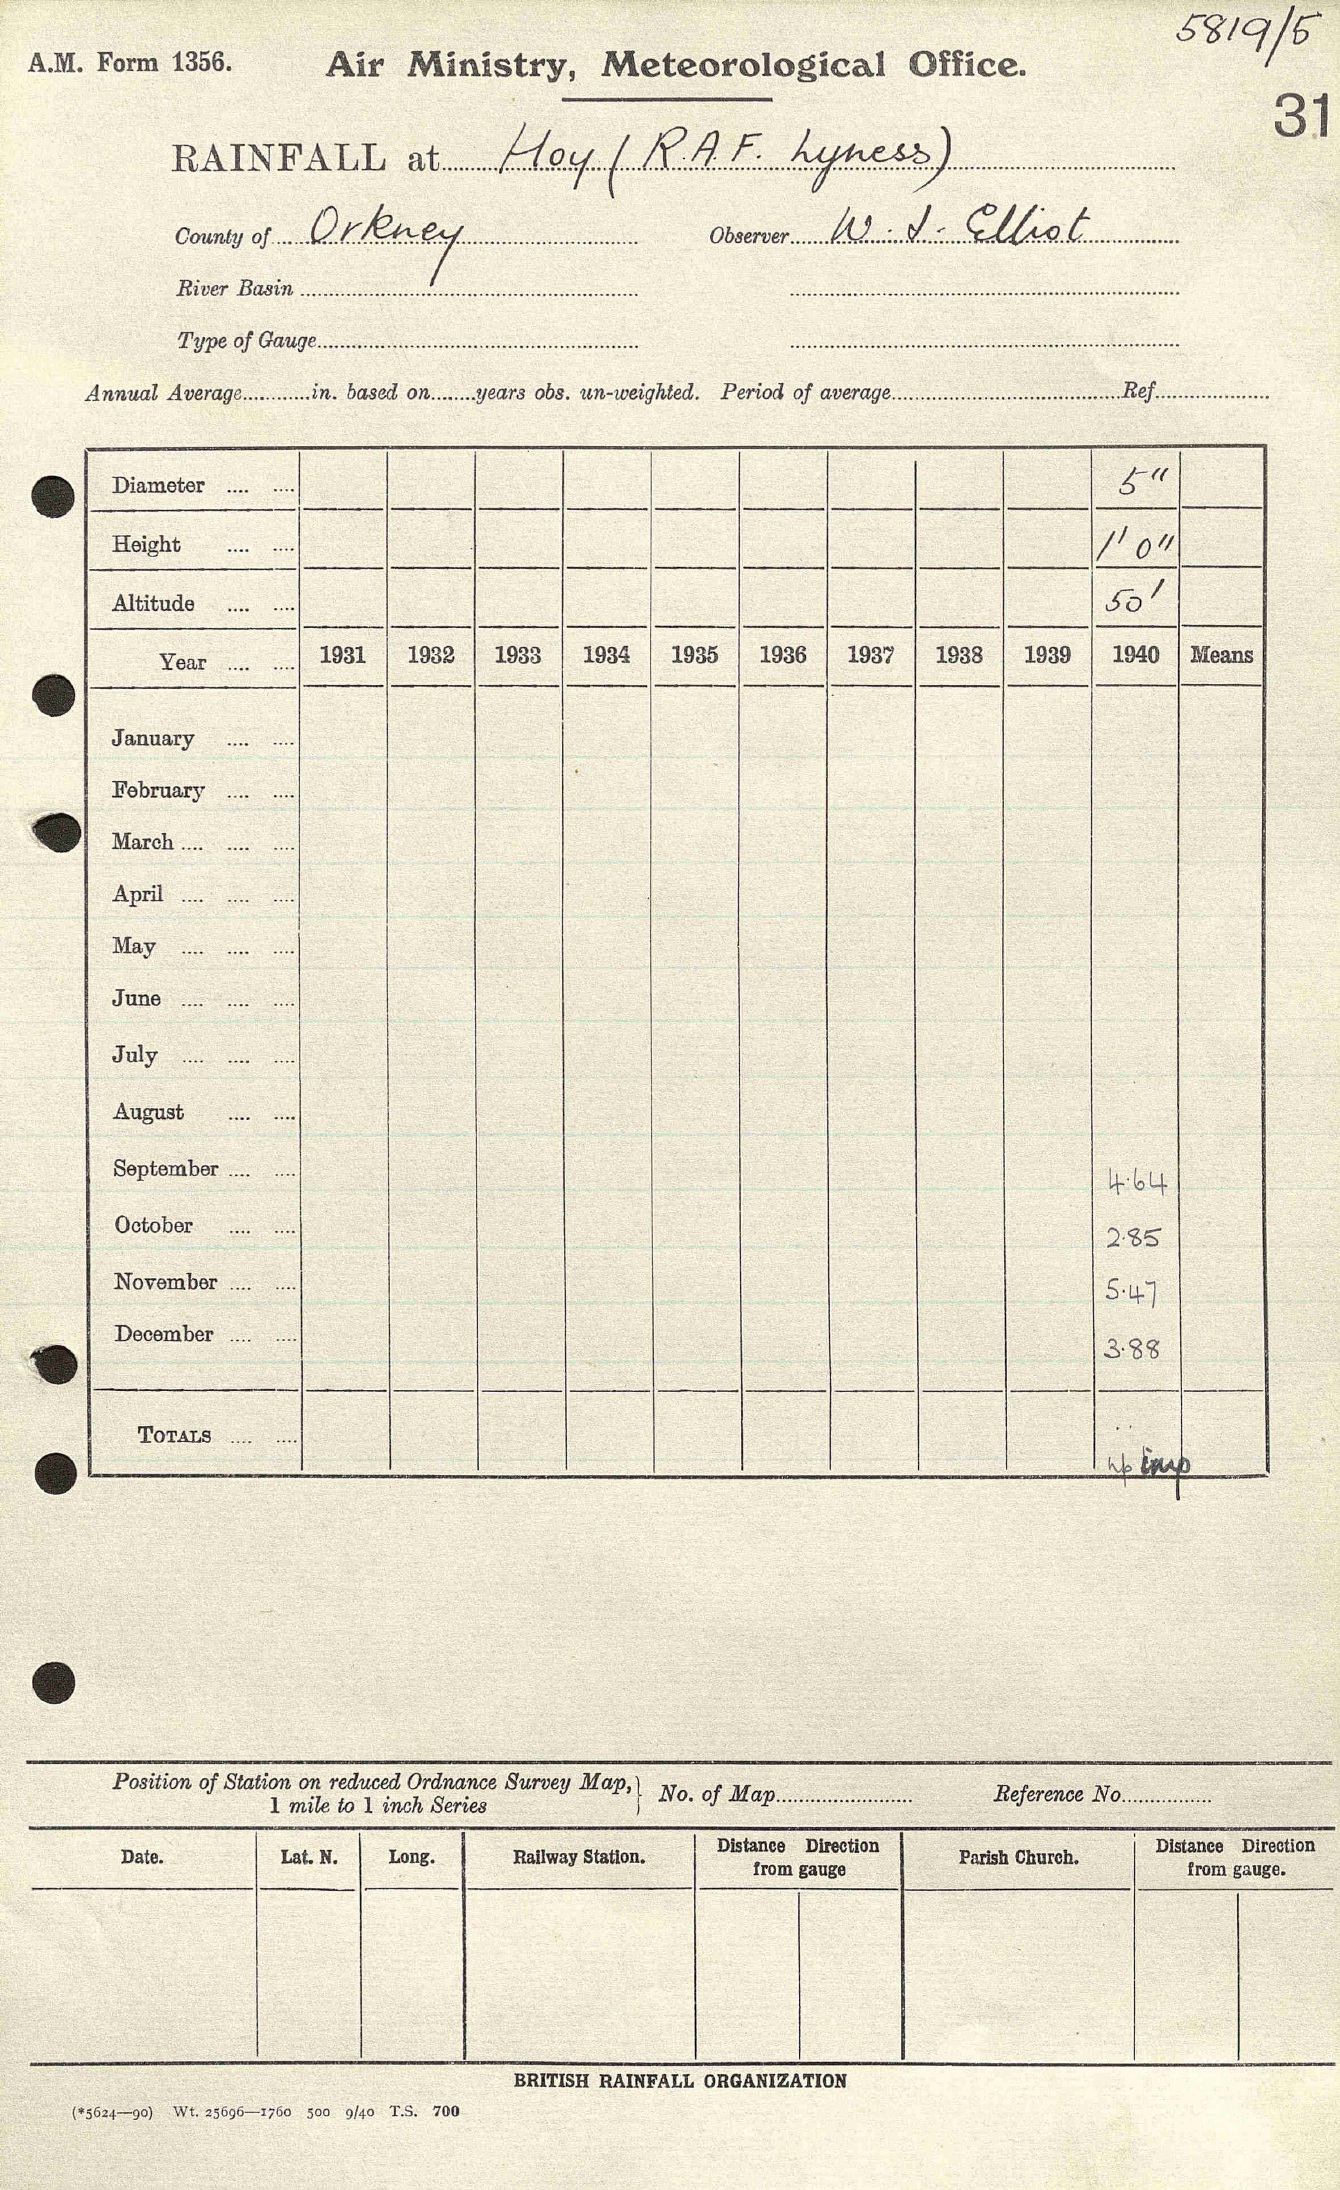 5819/5
A.M. Form 1356. Air Ministry, Meteorological Office.
31
RAINFALL at Hoy (R.A.F. Lyness)
County of Orkney Observer W. J. Elliot
River Basin
Type of Gauge
Annual Average............in. based on........years obs. un-weighted. Period of average Ref.
Diameter .... .... 5"
Height .... .... 1' 0"
Altitude .... .... 50'
Year .... .... 1931 1932 1933 1934 1935 1936 1937 1938 1939 1940 Means
January .... ....
February .... ....
March .... .... ....
April .... .... ....
May .... .... ....
June .... .... ....
July .... .... ....
August .... ....
September .... .... 4.64
October .... .... 2.85
November .... .... 5.47
December .... .... 3.88
TOTALS .... ....
imp
Position of Station on reduced Ordnance Survey Map, 1 mile to 1 inch Series } No. of Map Reference No.
Date. Lat. N. Long. Railway Station. Distance Direction from gauge Parish Church. Distance Direction from gauge.
BRITISH RAINFALL ORGANIZATION
(*5624—90) Wt. 25696—1760 500 9/40 T.S. 700